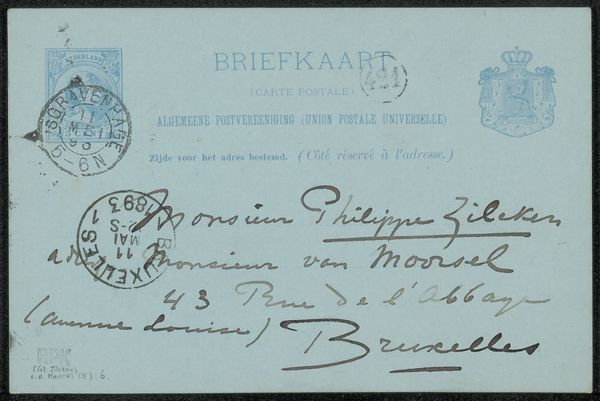 NEDERLAND
BRIEFKAART
(CARTE POSTALE)
421
ALGEMEENE POSTVEREENIGING (UNION POSTALE UNIVERSELLE)
Zijde voor het adres bestemd. (Côté réservé à l'adresse.)
'SGRAVENHAGE
11
MEI
93
5-6N
BRUXELLES 1
11
MAI
1893
Monsieur Philippe Zilcken
Monsieur van Moorsel
43 Rue de l'Abbaye
(avenue Louise)
Bruxelles
RPK
(Gl. Zilcken)
6.